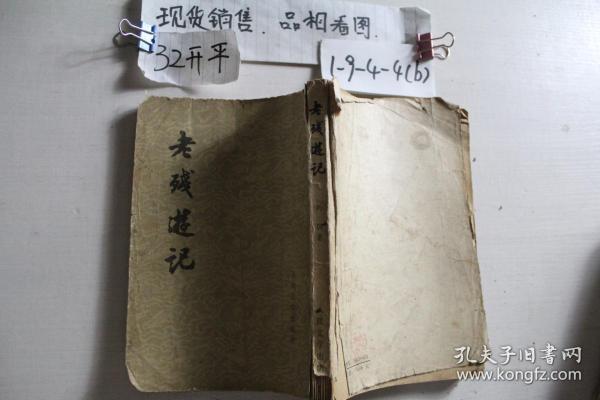 现货销售. 品相看图.
32开平
1-9-4-4(b)
老残遊记
老残遊记
孔夫子旧书网
www.kongfz.com